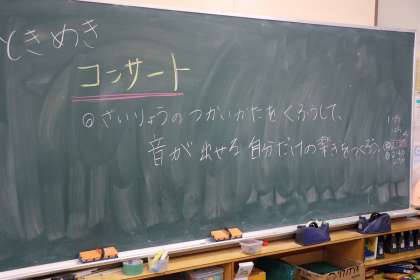 ときめき
コンサート
◎ざいりょうのつかいかたをくふうして、
音が出せる自分だけの楽きをつくろう。